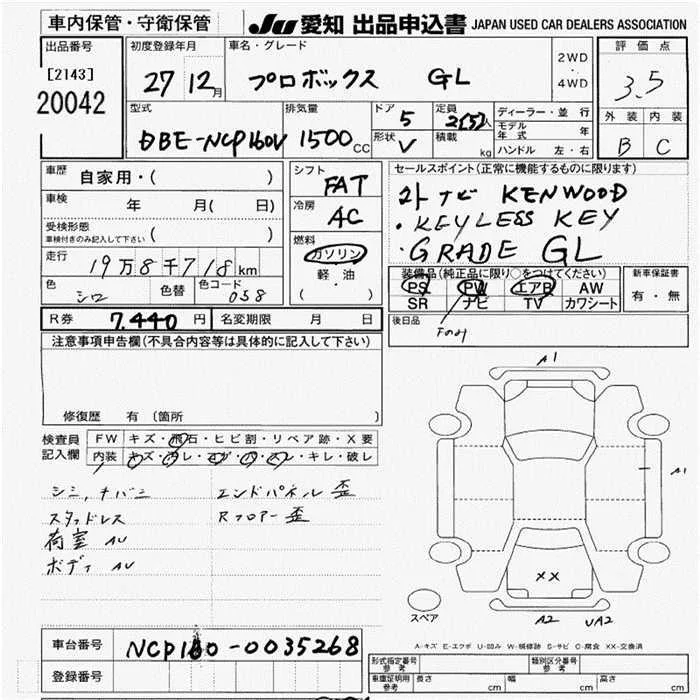 車内保管・守衛保管
JU 愛知 出品申込書 JAPAN USED CAR DEALERS ASSOCIATION
出品番号 初度登録年月 車名・グレード 2WD ・ 4WD 評価点
[2143] 27 12月 プロボックス GL 3.5
20042
型式 排気量 ドア 5 定員 2(5)人 ディーラー・並行 外装 内装
DBE-NCP160V 1500CC 形状 V 積載 kg モデル年式 年 B C
ハンドル 左・右
車歴 自家用・( ) シフト FAT セールスポイント(正常に機能するものに限ります)
車検 年 月( 日) 冷房 AC ナビ KENWOOD
受検形態 車検付きのみ記入して下さい ( ) ・KEYLESS KEY
燃料 ガソリン ・GRADE GL
走行 19万8千718km 軽・油 ( )
装備品(純正品に限り○をつけてください) 新車保証書
色 シロ 色替 色コード 058 PS PW エアB AW 有・無
SR ナビ TV カワシート
R券 7.440円 名変期限 月 日 後日品
注意事項申告欄(不具合内容等は具体的に記入して下さい)
A1
修復歴 有(箇所 )
検査員記入欄 FW キズ・飛石・ヒビ割・リペア跡・X要
内装 キズ・ヨゴレ・コゲ・穴・スレ・キレ・破レ
A1
シミ, エンドパネル歪
スタッドレス Rフロアー歪
荷室 AU
ボディ AU
XX
スペア A2 UA2
A-キズ E-エクボ U-凹み W-補修跡 S-サビ C-腐食 XX-交換済
車台番号 NCP160-0035268
形式指定番号 参考 類別区分番号 参考
登録番号 車庫証明用 参考 長さ cm 幅 cm 高さ cm